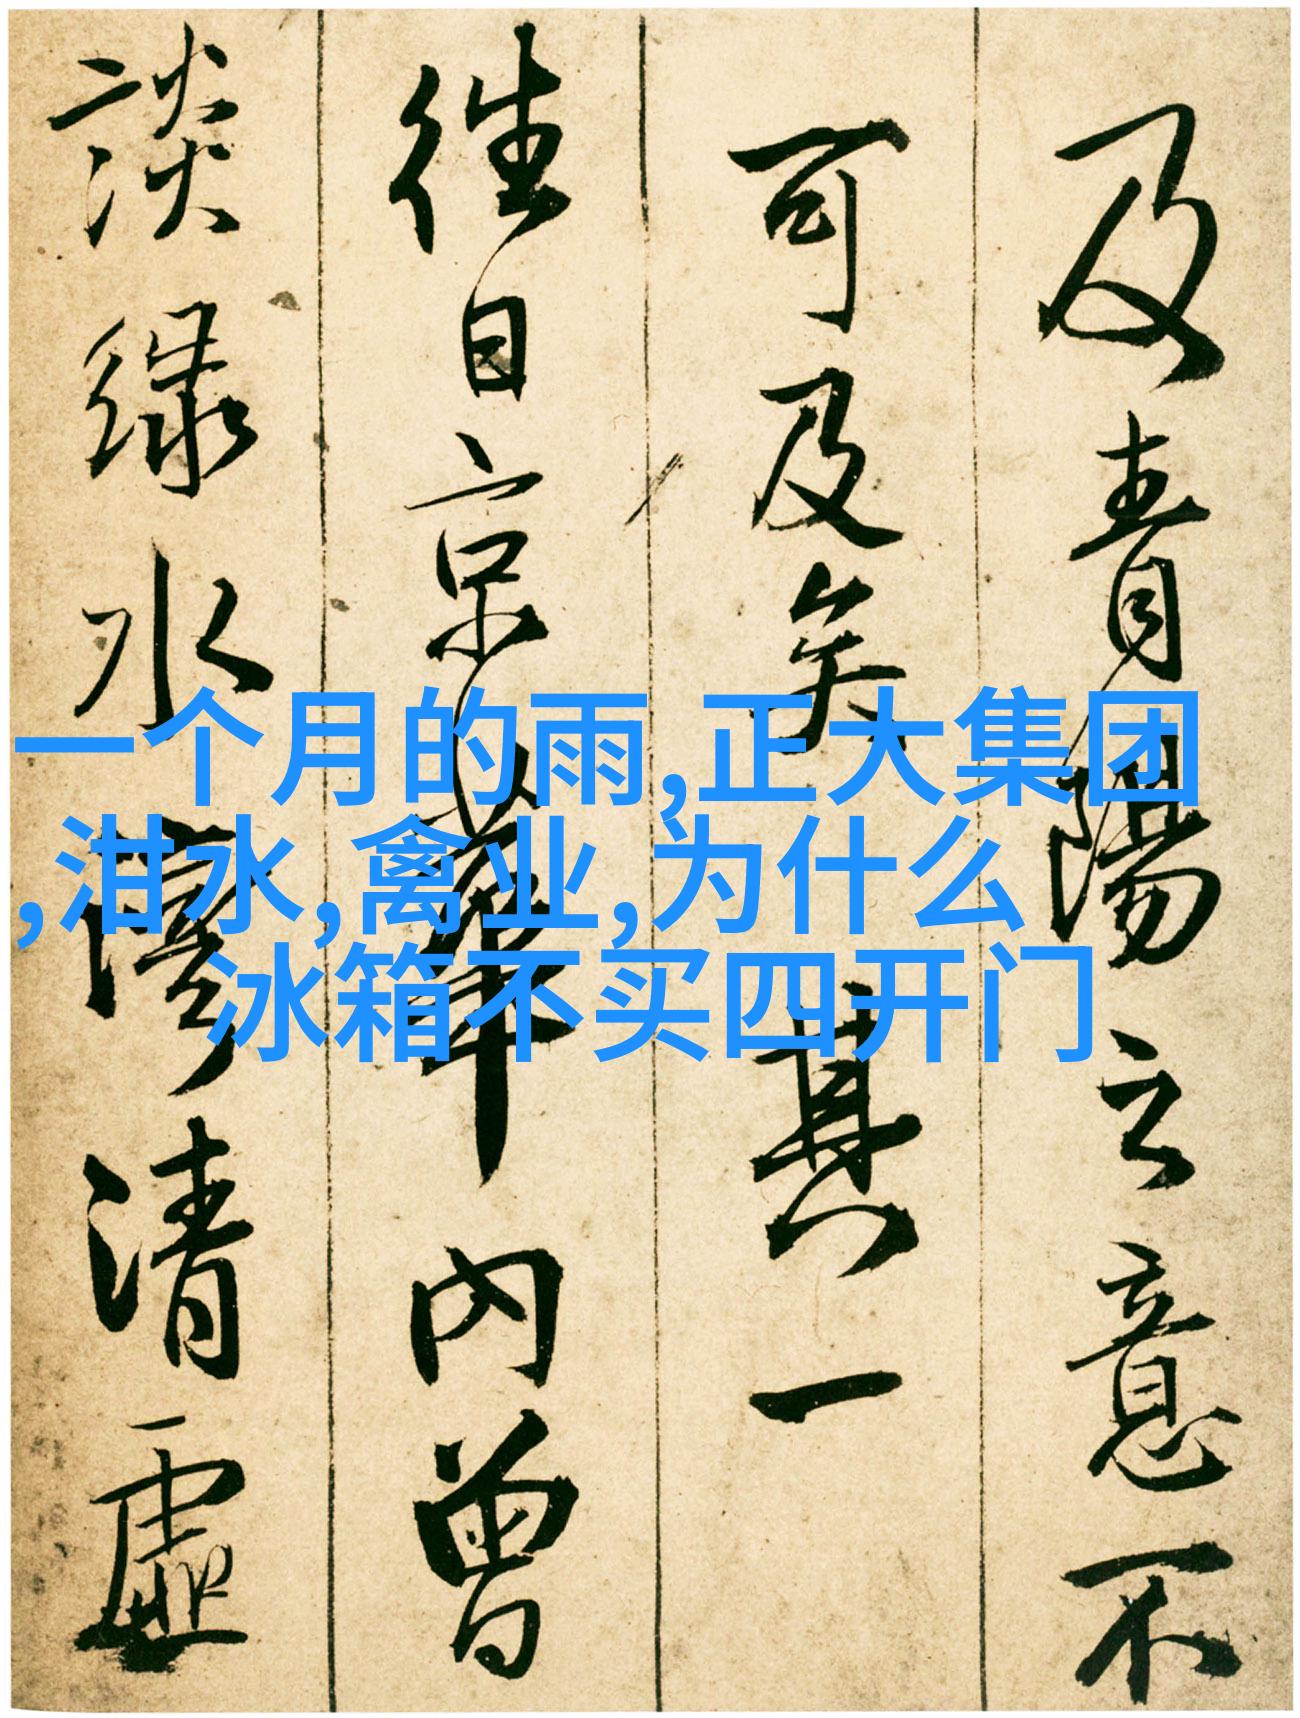 及青陽之意不
可及矣 其一
往日京華內曾
談綠水灣清虛
一个月的雨,正大集团
,泔水,禽业,为什么
冰箱不买四开门